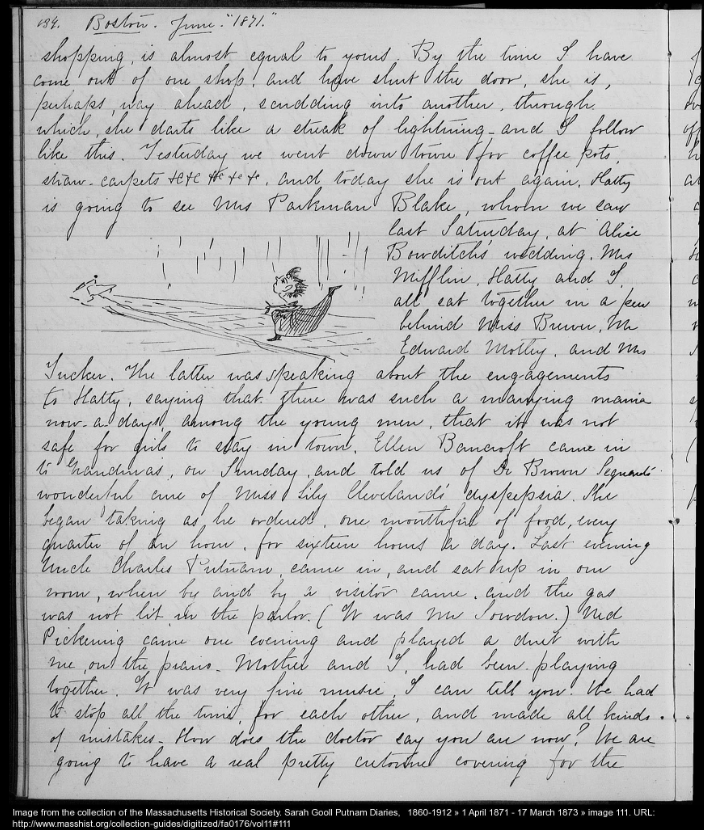 134. Boston. June. "1871."
shopping, is almost equal to yours. By the time I have
come out of one shop, and have shut the door, she is,
perhaps, way ahead, scudding into another, through
which, she darts like a streak of lightning - and I follow
like this. Yesterday we went down town for coffee pots,
straw-carpets &c &c &c + +, and today she is out again. Hatty
is going to see Mrs Parkman Blake, whom we saw
last Saturday, at Alice
Bowditch's wedding. Mrs
Mifflin, Hatty and I,
all sat together in a pew
behind Miss Brewer, Mr
Edward Motley, and Mrs
Tucker. The latter was speaking about the engagements
to Hatty, saying that there was such a marrying mania
now-a-days, among the young men, that it was not
safe for girls to stay in town. Ellen Bancroft came in
to Grandma's, on Sunday, and told us of Dr Brown Sequard's
wonderful cure of Miss Lily Cleveland's dyspepsia. She
began taking as he ordered, one mouthful of food, every
quarter of an hour, for sixteen hours a day. Last evening
Uncle Charles Putnam, came in, and sat up in our
room, when by and by a visitor came, and the gas
was not lit in the parlor. (It was Mr Sowdon.) Ned
Pickering came one evening and played a duet with
me, on the piano. Mother and I, had been playing
together. It was very fine music, I can tell you. We had
to stop all the time, for each other, and made all kinds
of mistakes. How does the doctor say you are now? We are
going to have a real pretty cretonne covering for the
Image from the collection of the Massachusetts Historical Society, Sarah Gooll Putnam Diaries, 1860-1912 » 1 April 1871 - 17 March 1873 » image 111. URL:
http://www.masshist.org/collection-guides/digitized/fa0176/vol11#111